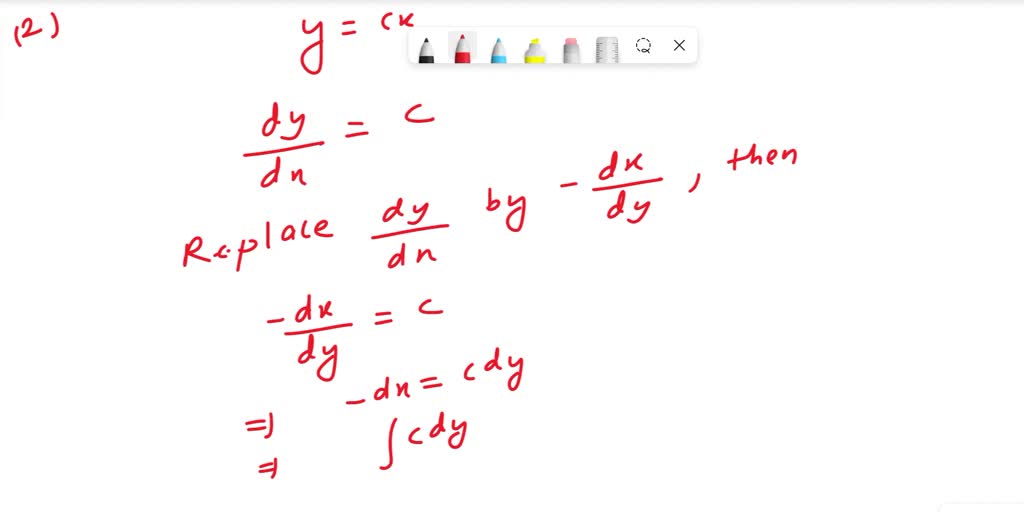 (2) y = cx
dy/dx = c
Replace dy/dx by - dx/dy, then
- dx/dy = c
=> - dx = c dy
=> ∫ c dy